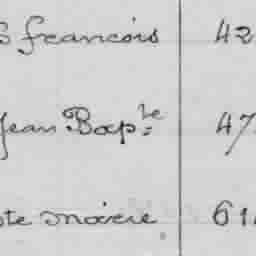 françois 42
Jean Bapte 47
ste marie 61